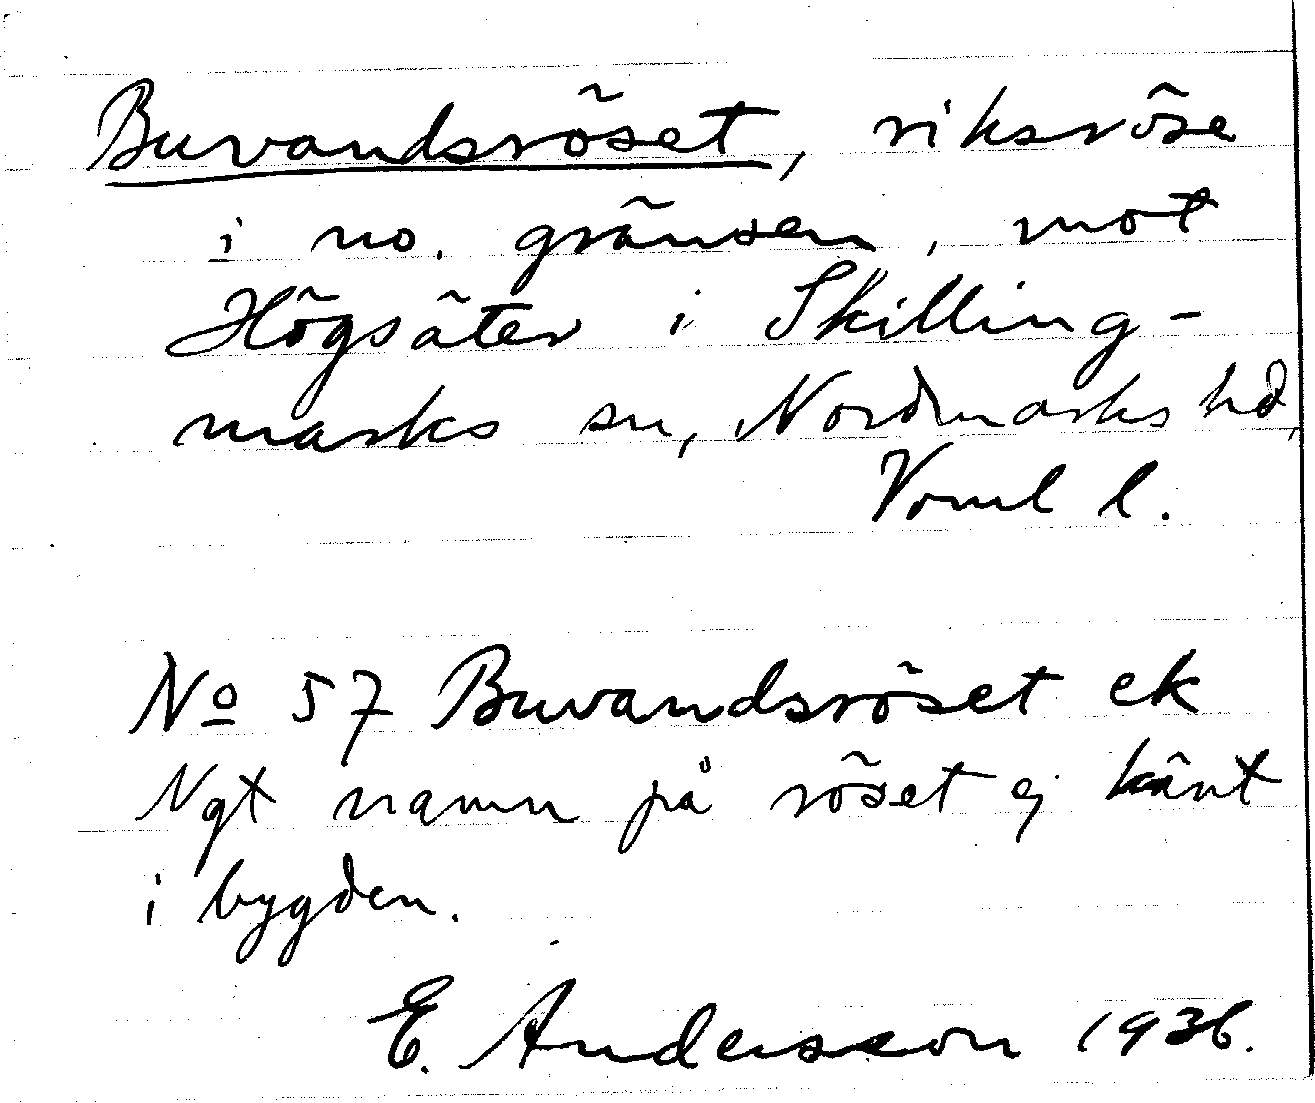 Buvandsröset, riksröse
i no. gränsen, mot
Högsäter i Skilling-
marks sn, Nordmarks hd,
Verml l.
No 57 Buvandsröset ek
Ngt namn på röset ej känt
i bygden.
E. Andersson 1936.